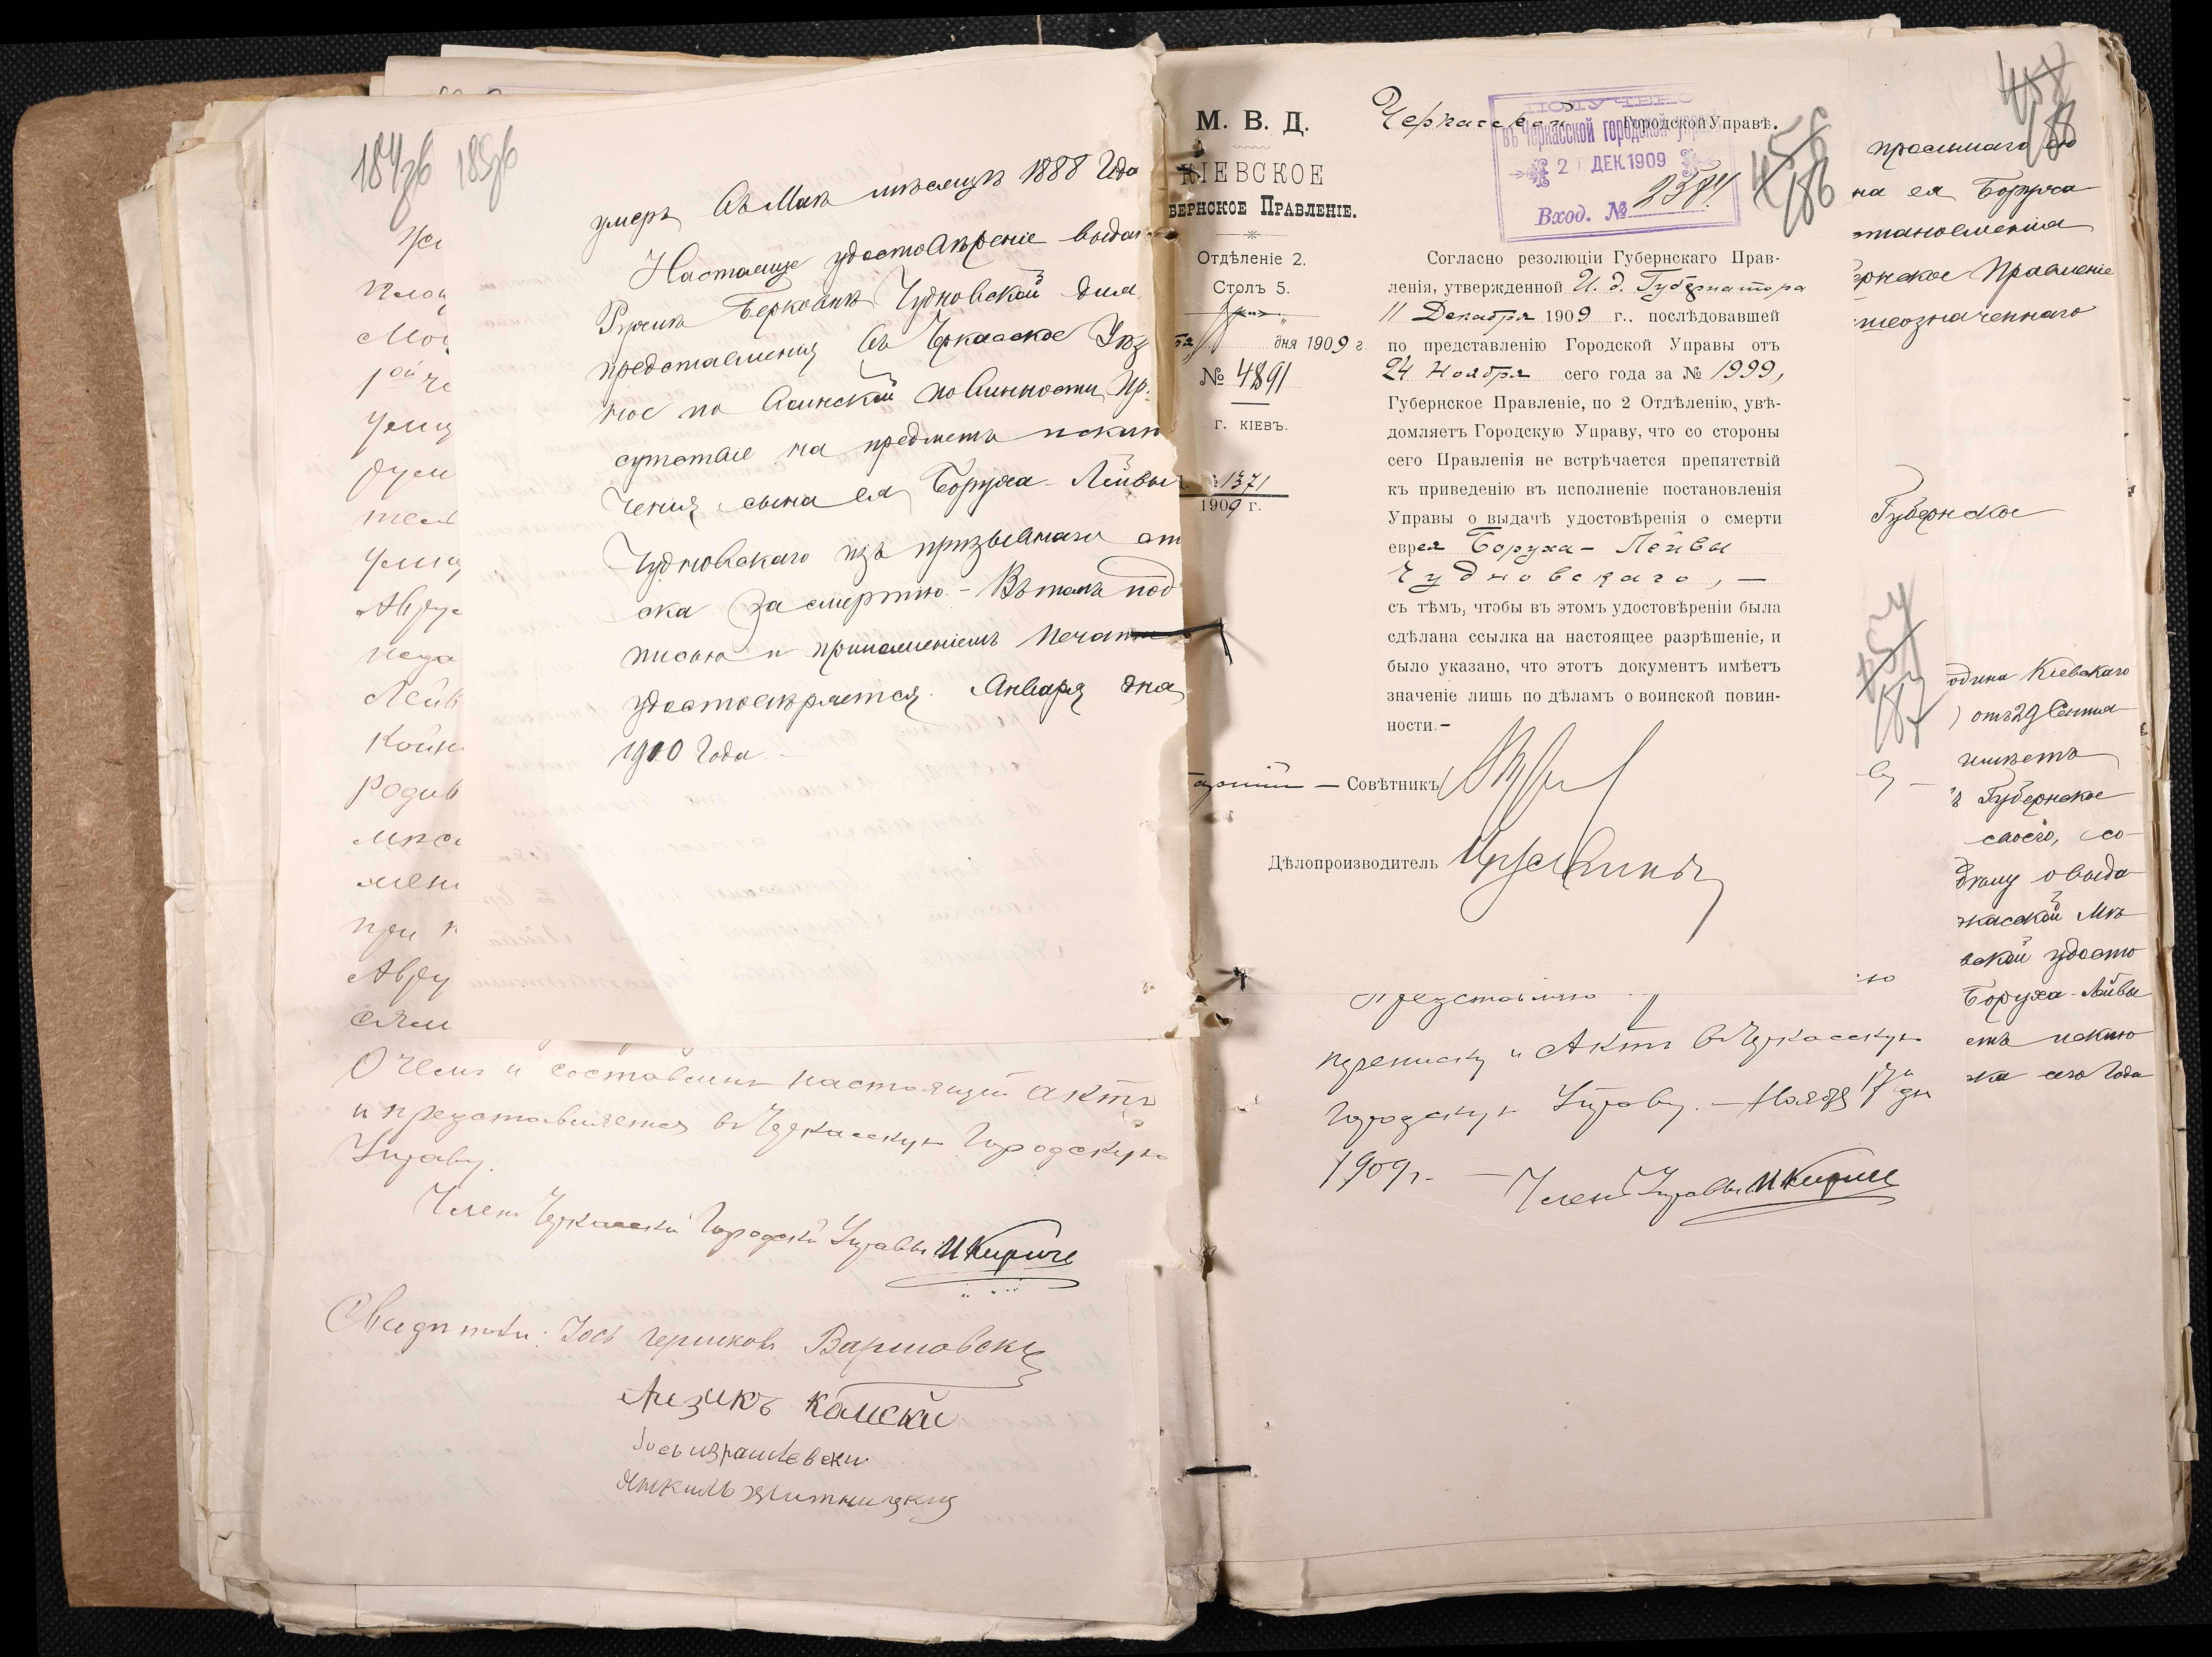 184об 185об
умеръ въ Маѣ мѣсяцѣ 1888 года
Настоящее удостовѣреніе выдан
Рухлѣ Берковнѣ Чудновской для
представленія въ Черкасское Уѣзд
ное по воинской повинности При
сутствіе на предметъ исклю
ченія сына ея Боруха-Лейвы
Чудновскаго изъ призывнаго спи
ска за смертію. - Въ томъ под
писью и приложеніемъ печати
удостовѣряется. Января дня
1910 года. -
Пло
Мо
1ой ч
теля
Авру
Лейв
Койн
Родив
мѣся
при
Авру
О чемъ и составленъ настоящій актъ
и представляется въ Черкасскую Городскую
Управу.
Членъ Черкасской Городской Управы И Кириче
Свидѣтели: Іось Гершковъ Варшавскій
Аизикъ Каменскій
Янкиль Житницкій
М. В. Д.
КІЕВСКОЕ
БЕРНСКОЕ ПРАВЛЕНІЕ.
Отдѣленіе 2.
Столъ 5.
дня 1909 г.
№ 4891
г. КІЕВЪ.
1371
1909 г.
Черкасской Городской Управѣ.
ПОЛУЧЕНО
въ Черкасской городской управѣ
2 ДЕК. 1909
Вход. № 2384
456
186
Согласно резолюціи Губернскаго Прав-
ленія, утвержденной И. д. Губернатора
11 Декабря 1909 г., послѣдовавшей
по представленію Городской Управы отъ
24 Ноября сего года за № 1999,
Губернское Правленіе, по 2 Отдѣленію, увѣ-
домляетъ Городскую Управу, что со стороны
сего Правленія не встрѣчается препятствій
къ приведенію въ исполненіе постановленія
Управы о выдачѣ удостовѣренія о смерти
еврея Боруха-Лейвы
Чудновскаго, —
съ тѣмъ, чтобы въ этомъ удостовѣреніи была
сдѣлана ссылка на настоящее разрѣшеніе, и
было указано, что этотъ документъ имѣетъ
значеніе лишь по дѣламъ о воинской повин-
ности. -
Совѣтникъ
Дѣлопроизводитель
Представляю
переписку и Актъ въ Черкасскую
Городскую Управу. — Ноября 17 дн
1909 г. — Членъ Управы И Кириче
457
187
188
на ея Боруха
становленія
рнское Правленіе
шеозначеннаго
Губернское
одина Кіевскаго
) отъ 29 Сентя
имѣетъ
ъ Губернское
своего, со-
о выда
касской Мѣ
вской удосто
Боруха-Лейвы
етъ исклю
ка сего года